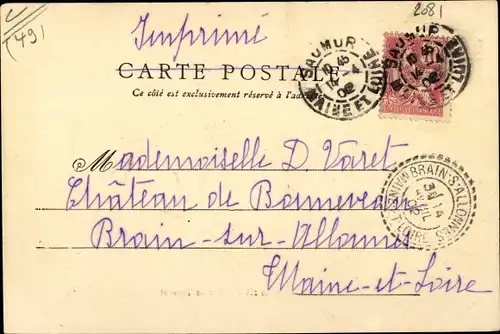 (49)
2081
Imprimé
CARTE POSTALE
Ce côté est exclusivement réservé à l'adresse
SAUMUR
10 45
14 4
02
MAINE ET LOIRE
SAUMUR
10 45
14 4
02
MAINE
Mademoiselle D. Varet
Château de Bonneveau
Brain-sur-Allonnes
Maine-et-Loire
BRAIN-S-ALLONNES
14
02
ET-LOIRE